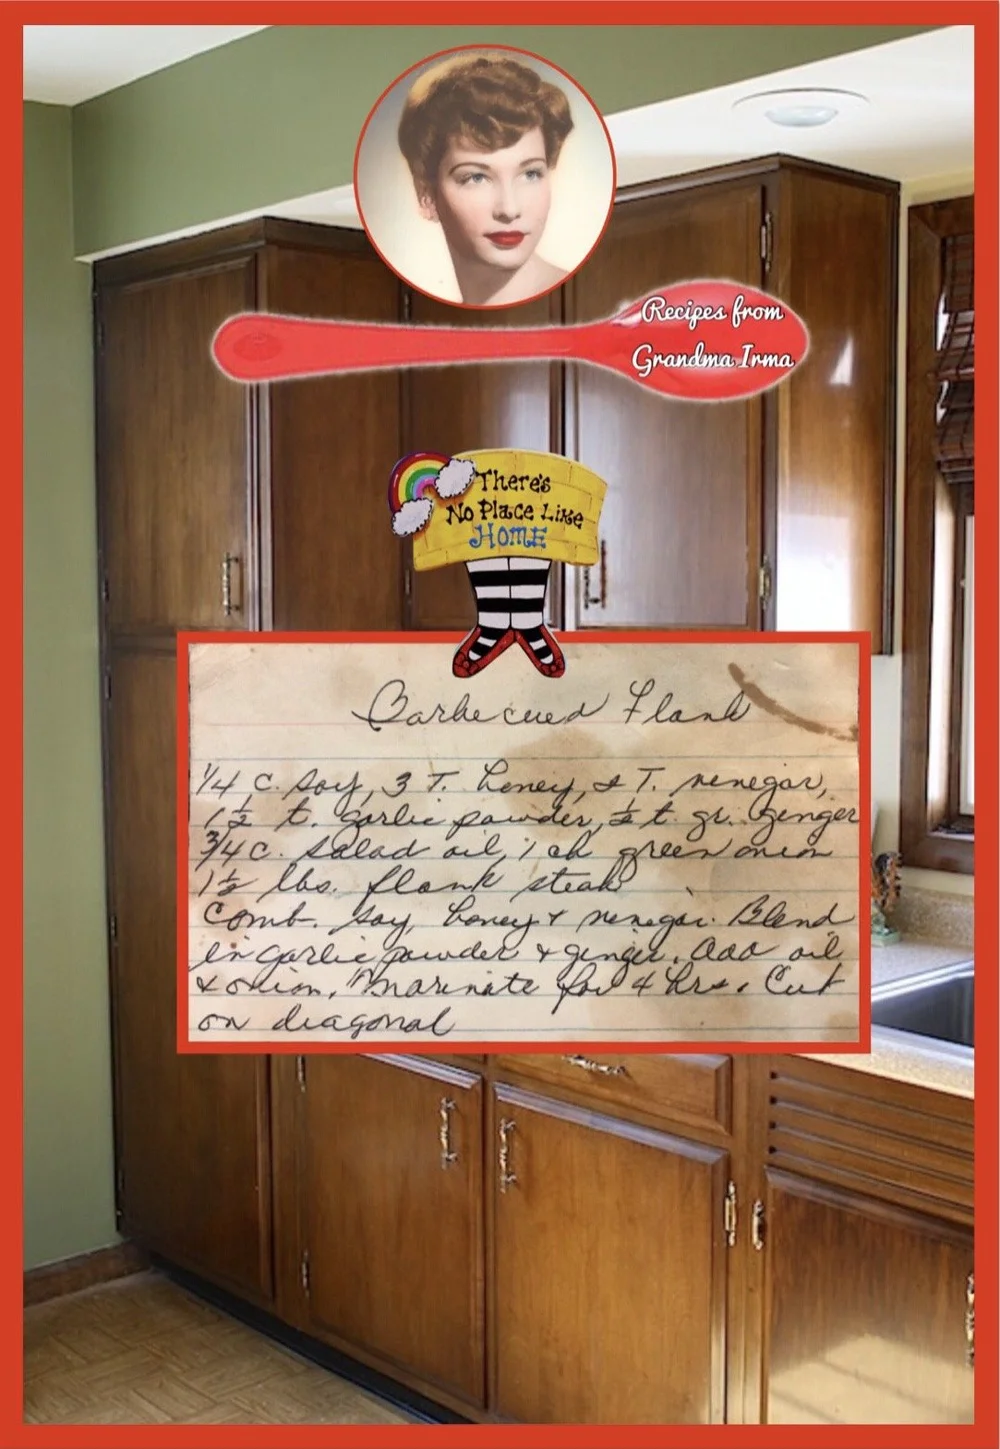 Recipes from
Grandma Irma
There's
No Place Like
HOME
Barbecued Flank
1/4 c. soy, 3 T. honey, 2 T. vinegar,
1 1/2 t. garlic powder, 1/2 t. gr. ginger
3/4 c. salad oil, 1 ch green onion
1 1/2 lbs. flank steak
Comb. soy, honey + vinegar. Blend
in garlic powder + ginger. Add oil
+ onion. Marinate for 4 hrs. Cut
on diagonal